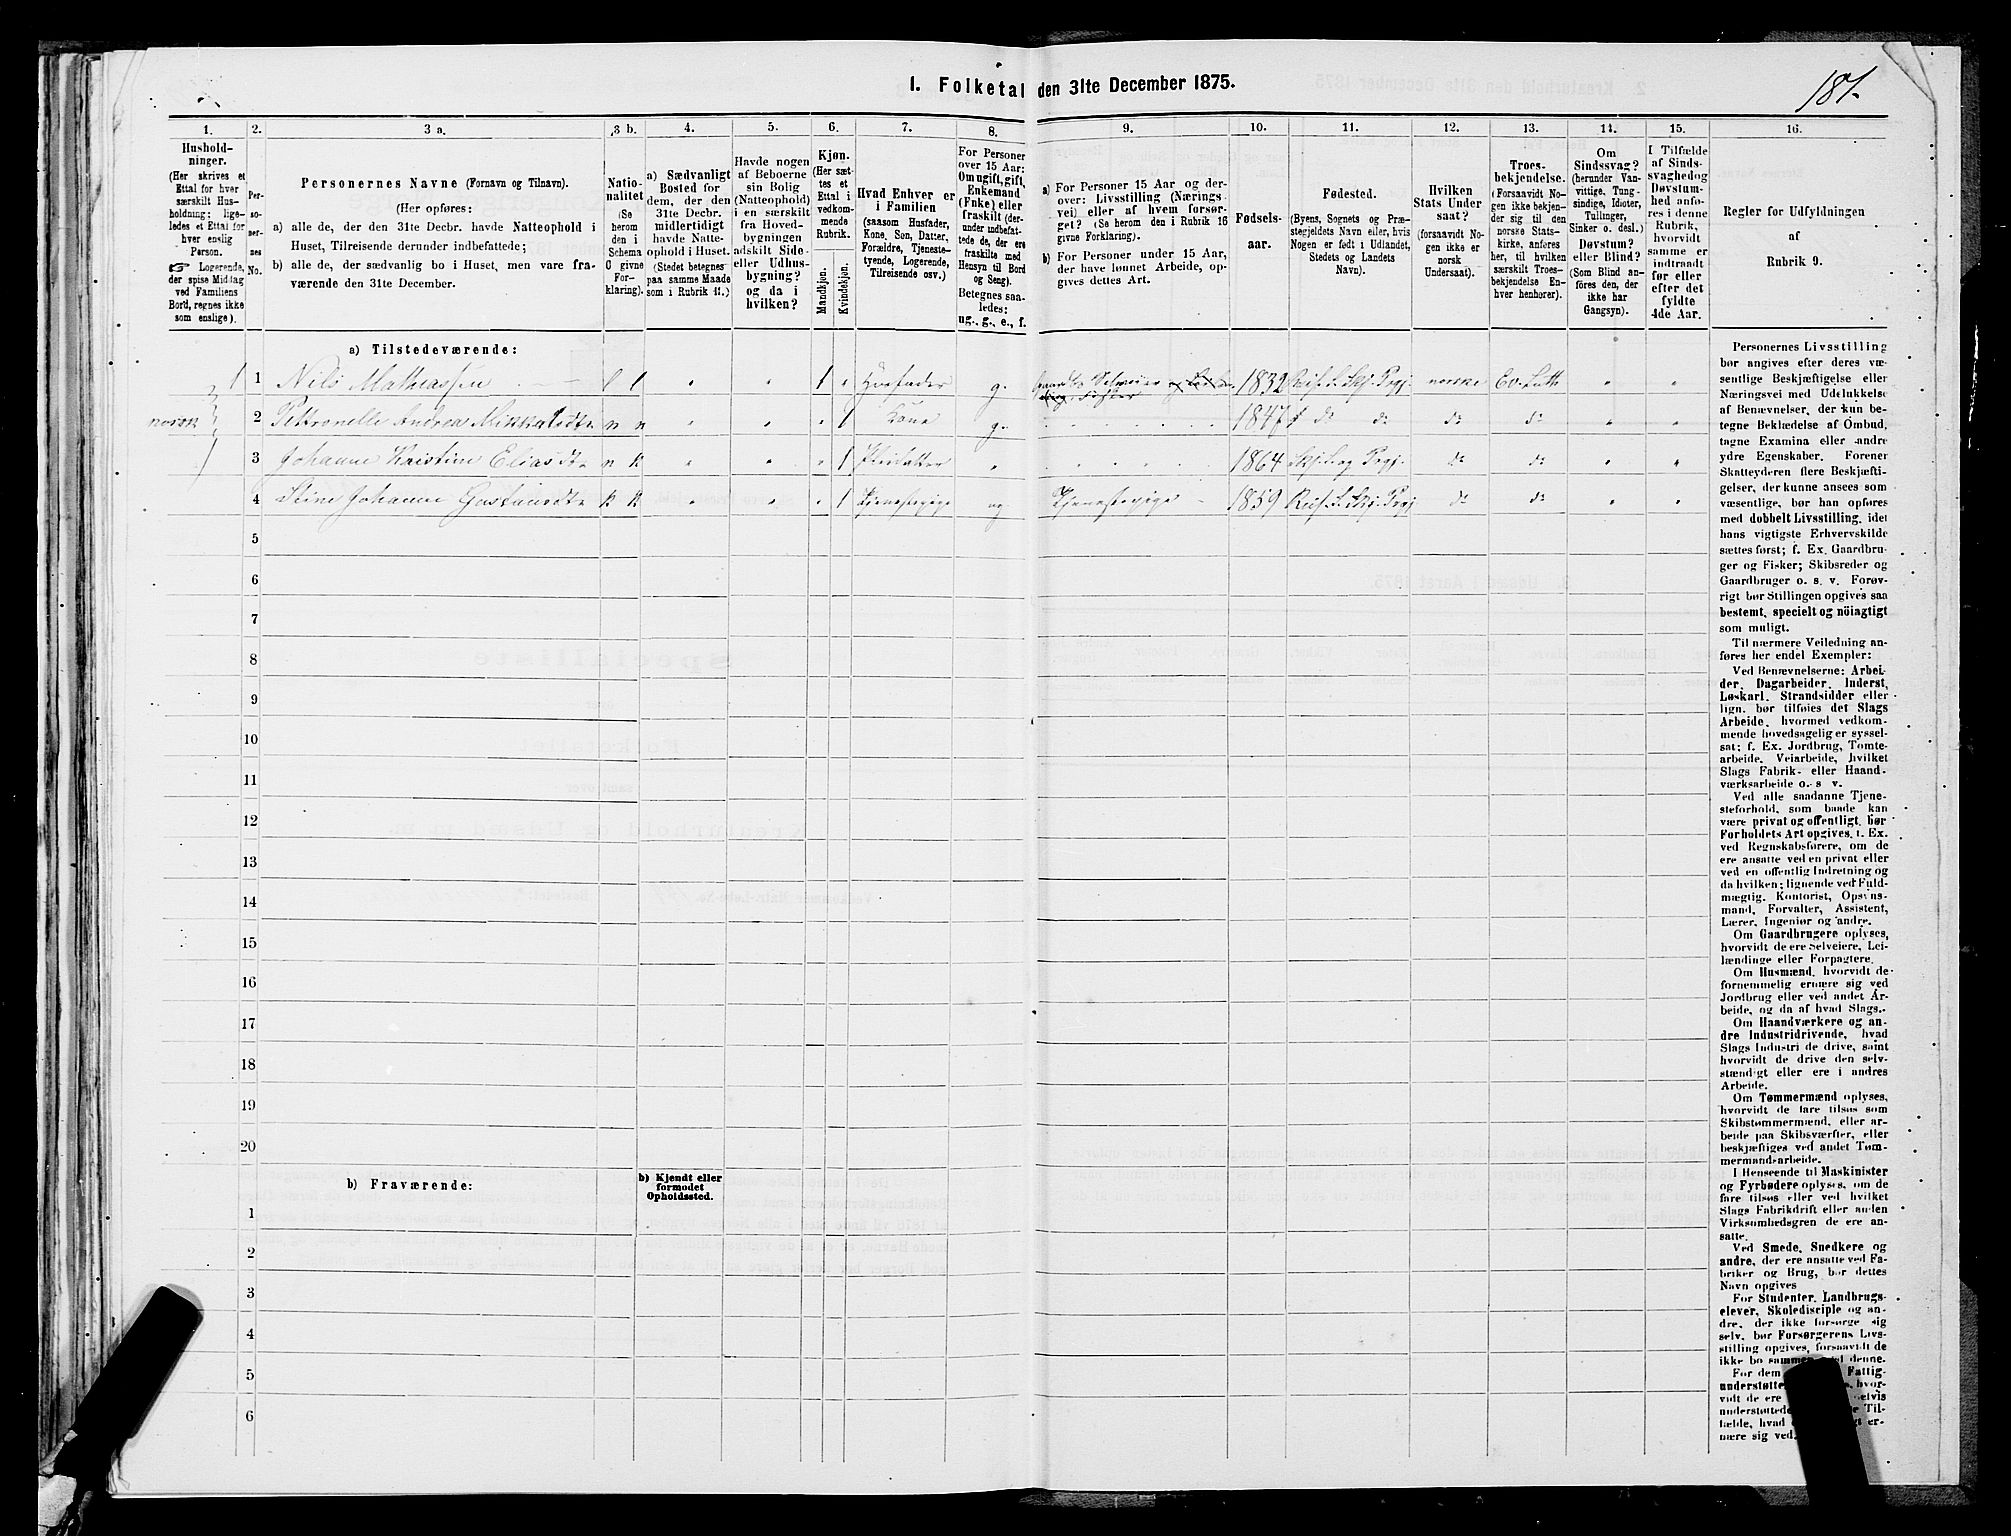 1. Folketal den 31te December 1875.
181.
1. 2. 3 a. 3 b. 4. 5. 6. 7. 8. 9. 10. 11. 12. 13. 14. 15. 16.
Hushold-
ninger.
(Her skrives et
Ettal for hver
særskilt Hus-
holdning; lige-
ledes et Ettal for
hver enslig
Person.
☞ Logerende,
der spise Middag
ved Familiens
Bord, regnes ikke
som enslige).
Per-
so-
ner-
nes
No.
Personernes Navne (Fornavn og Tilnavn).
(Her opføres:
a) alle de, der den 31te Decbr. havde Natteophold i
Huset, Tilreisende derunder indbefattede;
b) alle de, der sædvanlig bo i Huset, men vare fra-
værende den 31te December.
Natio-
nalitet
(Se
herom
den i
Schema
C givne
For-
klaring).
a) Sædvanligt
Bosted for
dem, der den
31te Decbr.
midlertidigt
havde Natte-
ophold i Huset.
(Stedet betegnes
paa samme Maade
som i Rubrik 11.)
Havde nogen
af Beboerne
sin Bolig
(Natteophold)
i en særskilt
fra Hoved-
bygningen
adskilt Side-
eller Udhus-
bygning?
og da i
hvilken?
Kjøn.
(Her sæt-
tes et
Ettal i
vedkom-
mende
Rubrik.
Mandkjøn.
Kvindekjøn.
Hvad Enhver er
i Familien
(saasom Husfader,
Kone, Søn, Datter,
Forældre, Tjeneste-
tyende, Logerende,
Tilreisende osv.)
For Personer
over 15 Aar:
Om ugift, gift,
Enkemand
(Enke) eller
fraskilt (der-
under indbefat-
tede de, der ere
fraskilte med
Hensyn til Bord
og Seng).
Betegnes saa-
ledes:
ug., g., e., f.
a) For Personer 15 Aar og der-
over: Livsstilling (Nærings-
vei) eller af hvem forsør-
get? (Se herom den i Rubrik 16
givne Forklaring).
b) For Personer under 15 Aar,
der have lønnet Arbeide, op-
gives dettes Art.
Fødsels-
aar.
Fødested.
(Byens, Sognets og Præ-
stegjeldets Navn eller, hvis
Nogen er født i Udlandet,
Stedets og Landets
Navn).
Hvilken
Stats Under
saat?
(forsaavidt No-
gen ikke er
norsk
Undersaat).
Troes-
bekjendelse.
(Forsaavidt No-
gen ikke bekjen-
der sig til den
norske Stats-
kirke, anføres
her, til hvilken
særskilt Troes-
bekjendelse En-
hver henhører).
Om
Sindssvag?
(herunder Van-
vittige, Tung-
sindige, Idioter,
Tullinger,
Sinker o. desl.)
Døvstum?
eller Blind?
(Som Blind an-
føres den, der
ikke har
Gangsyn).
I Tilfælde
af Sinds-
svaghed og
Døvstum-
hed anfø-
res i denne
Rubrik,
hvorvidt
samme er
indtraadt
før eller
efter det
fyldte
4de Aar.
Regler for Udfyldningen
af
Rubrik 9.
a) Tilstedeværende:
1 1 Nils Mathiassen l l " " 1 " Husfader g. 1832 Ev. Luth " "
norsk 2 Petronelle Andrea Mikkelsdtr n n " " " 1 Kone g. 1847 do do do do " "
3 Johanne Kristine Eliasdtr n k " " " 1 Pleiedatter " 1864 do do " "
4 Stine Johanne Gustavsdtr k k " " " 1 Tjenestepige ug Tjenestepige 1859 do do " "
5
6
7
8
9
10
11
12
13
14
15
16
17
18
19
20
b) Fraværende:
b) Kjendt eller
formodet
Opholdssted.
1
2
3
4
5
6
Personernes Livsstilling
bør angives efter deres væ-
sentlige Beskjæftigelse eller
Næringsvei med Udelukkelse
af Benævnelser, der kun be-
tegne Beklædelse af Ombud,
tagne Examina eller andre
ydre Egenskaber. Forener
Skatteyderen flere Beskjæfti-
gelser, der kunne ansees som
væsentlige, bør han opføres
med dobbelt Livsstilling, idet
hans vigtigste Erhvervskilde
sættes først; f. Ex. Gaardbru-
ger og Fisker; Skibsreder og
Gaardbruger o. s. v. Forøv-
rigt bør Stillingen opgives saa
bestemt, specielt og nöiagtigt
som muligt.
Til nærmere Veiledning an-
føres her endel Exempler:
Ved Benævnelserne: Arbei-
der, Dagarbeider, Inderst,
Løskarl, Strandsidder eller
lign. bør tilføies det Slags
Arbeide, hvormed vedkom-
mende hovedsagelig er syssel-
sat; f. Ex. Jordbrug, Tomte-
arbeide, Veiarbeide, hvilket
Slags Fabrik- eller Haand-
værksarbeide o. s. v.
Ved alle saadanne Tjene-
steforhold, som baade kan
være privat og offentligt, bør
Forholdets Art opgives, t. Ex.
ved Regnskabsførere, om de
ere ansatte ved en privat eller
ved en offentlig Indretning og
da hvilken; lignende ved Fuld-
mægtig, Kontorist, Opsyns-
mand, Forvalter, Assistent,
Lærer, Ingeniør og andre.
Om Gaardbrugere oplyses,
hvorvidt de ere Selveiere, Lei-
lændinge eller Forpagtere.
Om Husmænd, hvorvidt de
fornemmelig ernære sig ved
Jordbrug eller ved andet Ar-
beide, og da af hvad Slags.
Om Haandværkere og an-
dre Industridrivende, hvad
Slags Industri de drive, samt
hvorvidt de drive den selv-
stændigt eller ere i andres
Arbeide.
Om Tømmermænd oplyses,
hvorvidt de fare tilsøs som
Skibstømmermænd, eller ar-
beide paa Skibsværfter, eller
beskjæftiges ved andet Tøm-
mermandsarbeide.
I Henseende til Maskinister
og Fyrbødere oplyses, om de
fare tilsøs eller ved hvilket
Slags Fabrikdrift eller anden
Virksomhedsgren de ere an-
satte.
Ved Smede, Snedkere og
andre, der ere ansatte ved Fa-
briker og Brug, bør dettes
Navn opgives
For Studenter, Landbrugs-
elever, Skoledisciple og an-
dre, der ikke forsørge sig
selv, bør Forsørgerens Livs-
stilling opgives, forsaavidt de
ikke bo sammen denne.
For dem Fattig-
understøtte hvor-
vidt de ere selvis
understøttede Til-
fælde, hvad er-
nære sig ved.